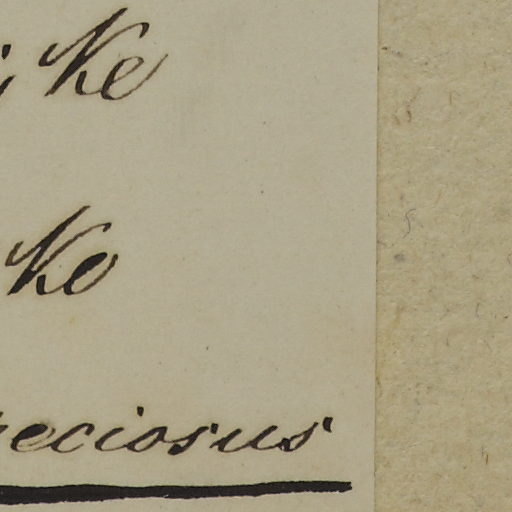 ; Ke
Ko
reciosus